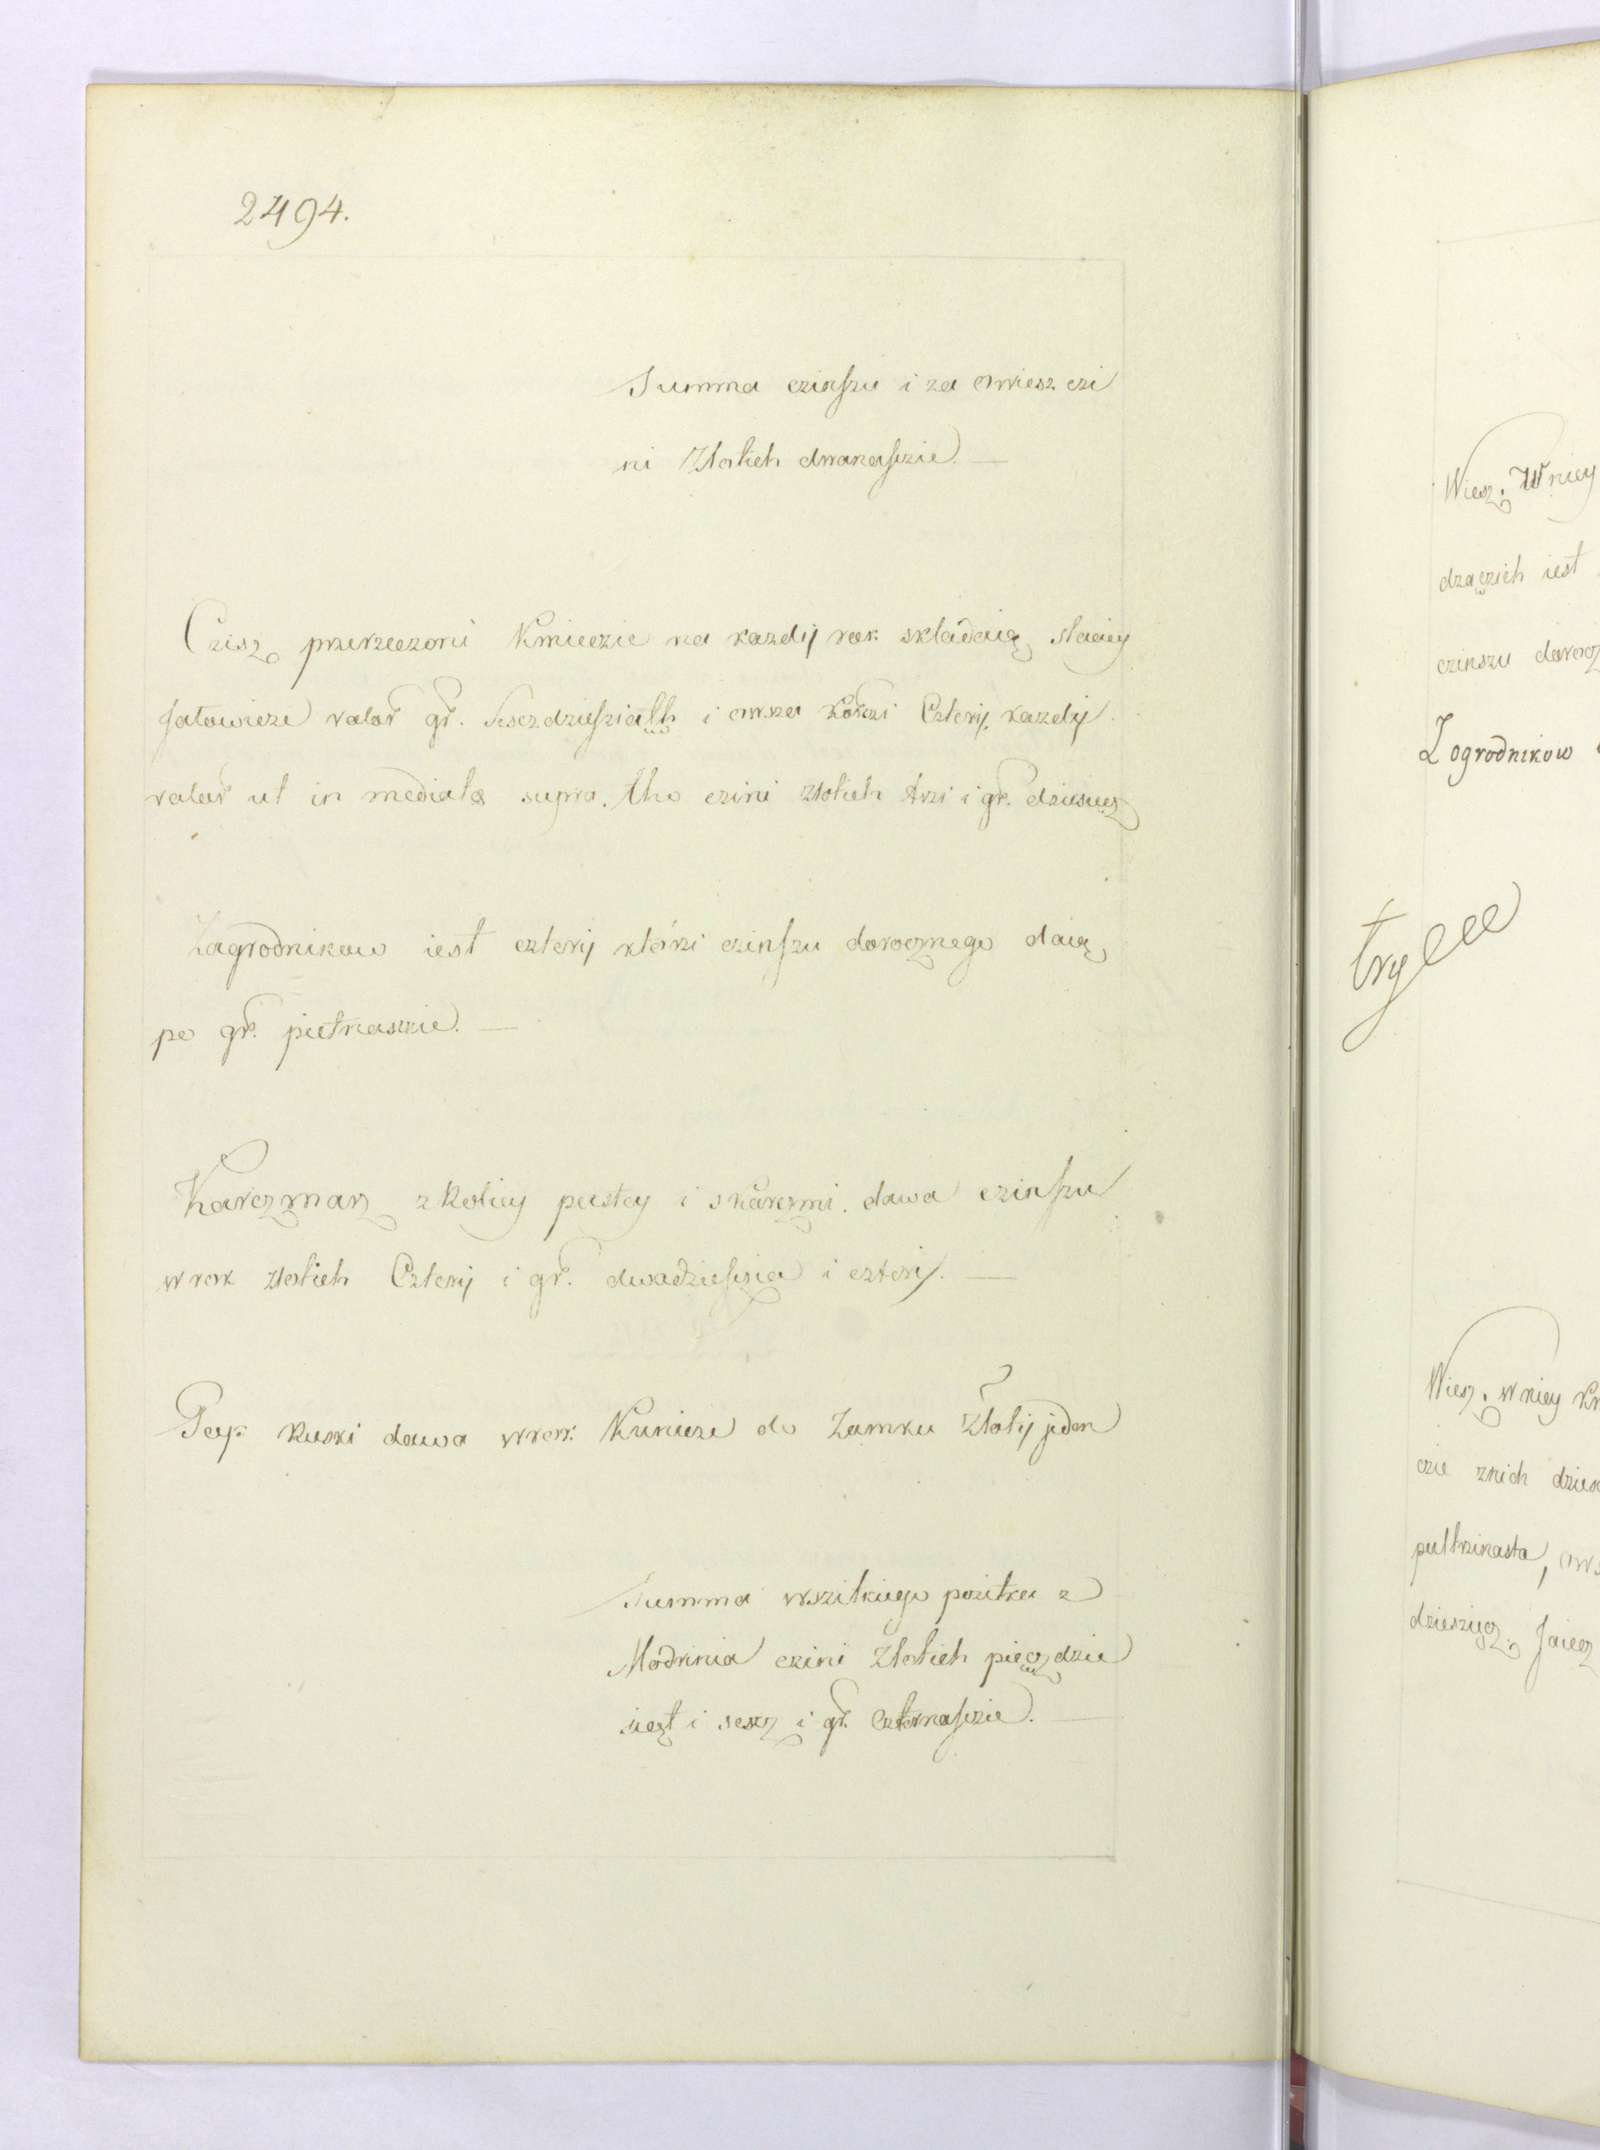 2494.
Summa czinszu i za owies czi
ni Złotich dwanaszcie.
Czisz przerzeczoni Kmieczie na kazdij rok składaią staciey
Jałowicze valor gr. Seszdzieszianth i owsza Korczi Czterij. kazdij
valor ut in mediate supra. Uno czini złotich trzi i gr. dziesięcz
Zagrodnikow iest czterij ktorzi czinszu dorocznego daią
po gr. pietnaszcie.
Karczmarz z Roliey pustey i skarczmi. dawa czinszu
w rok złotich Czterij i gr. dwadzieszcia i czterij.
Pop Ruski dawa w rok Kunicze do Zamku Złotij jeden
Summa wszitkiego pozitku z
Modrinia czini Złotich pięczdzie
siąt i sescz i gr. Czternaszcie.
Wiesz. W niey
dzączich iest
czinszu
Zogrodnikow
Wiesz. w niey
czie znich
pultrzinasta,
dzieszięcz. Jaiecz